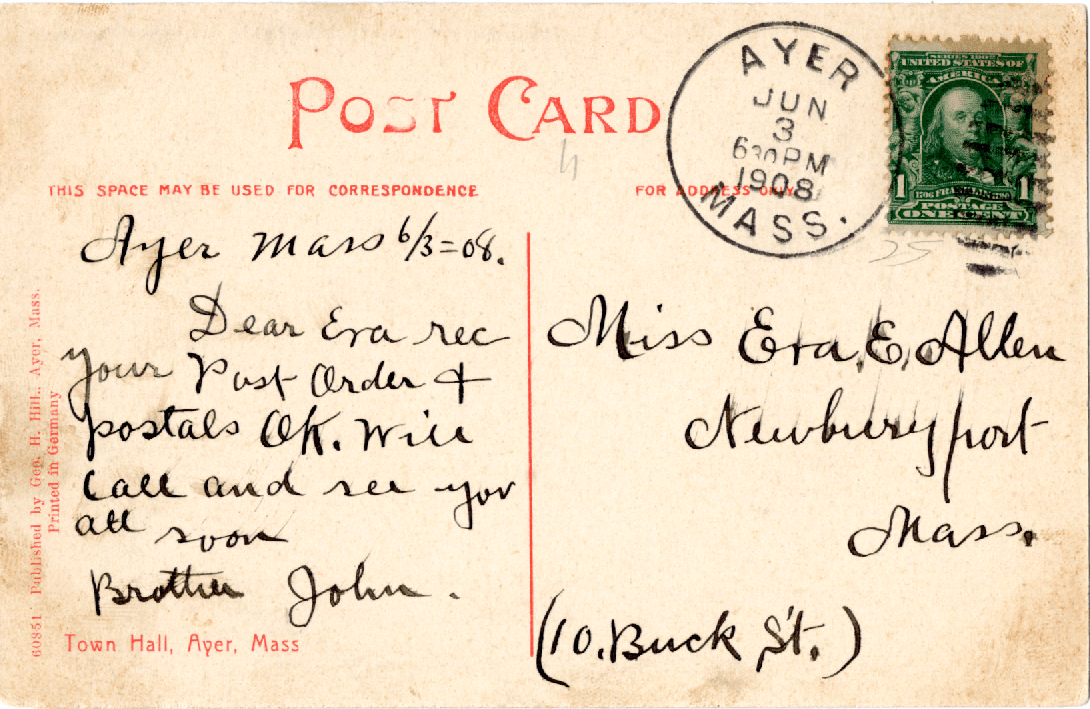 POST CARD
THIS SPACE MAY BE USED FOR CORRESPONDENCE
FOR ADDRESS ONLY
AYER
JUN
3
630PM
1908
MASS.
SERIES 1902
UNITED STATES OF
AMERICA
1 1
POSTAGE
ONE CENT
Ayer Mass 6/3=08.
Dear Eva rec
your Post Order &
postals OK. Will
Call and see you
all soon
Brother John.
Miss Eva. E. Allen
Newburyport
Mass.
(10. Buck St.)
Town Hall, Ayer, Mass
60851 Published by Geo. H. Hill, Ayer, Mass.
Printed in Germany